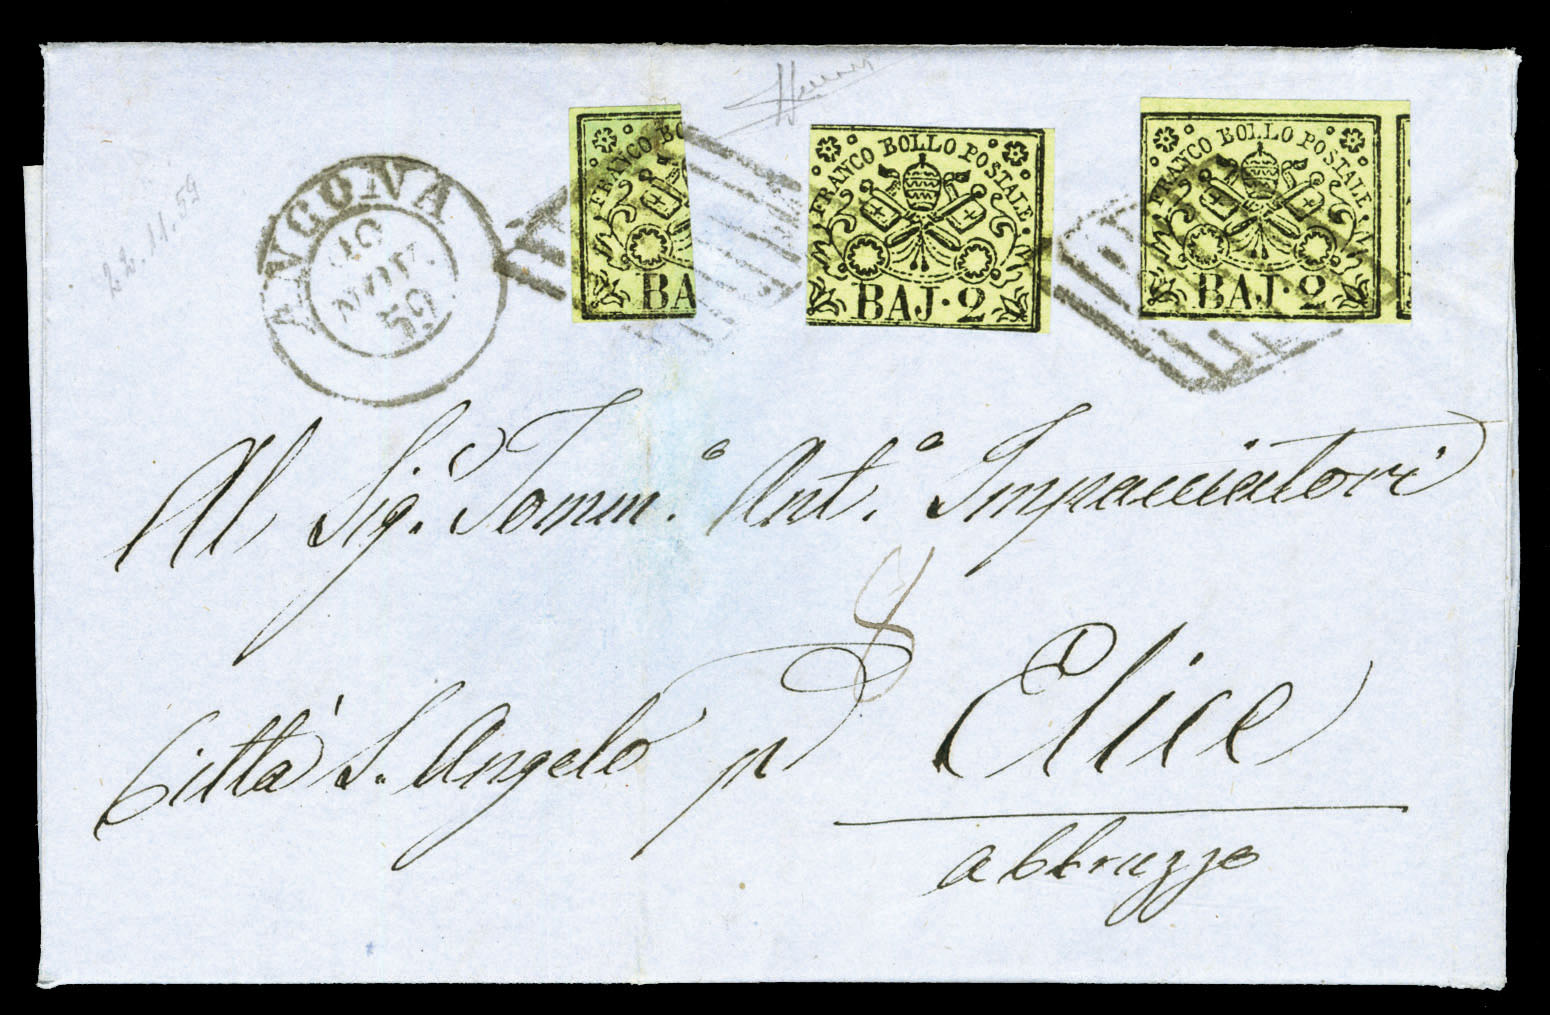 FRANCO BO
BA
FRANCO BOLLO POSTALE
BAJ. 2
FRANCO BOLLO POSTALE
BAJ. 2
ANCONA
NOV.
59
22.11.59
Al Sig.r Tomm.o Ant.o Impacciatori
8
Città S. Angelo p Elice
abbruzzo